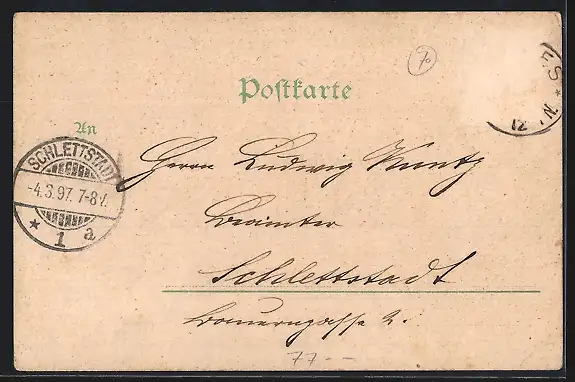 70
Postkarte
4S * N.
12
An
SCHLETTSTADT
-4.3.97. 7-8V.
* 1 a
Herrn Ludwig Wuntz
Beamter
Schlettstadt
Bauerngasse 2.
77 --